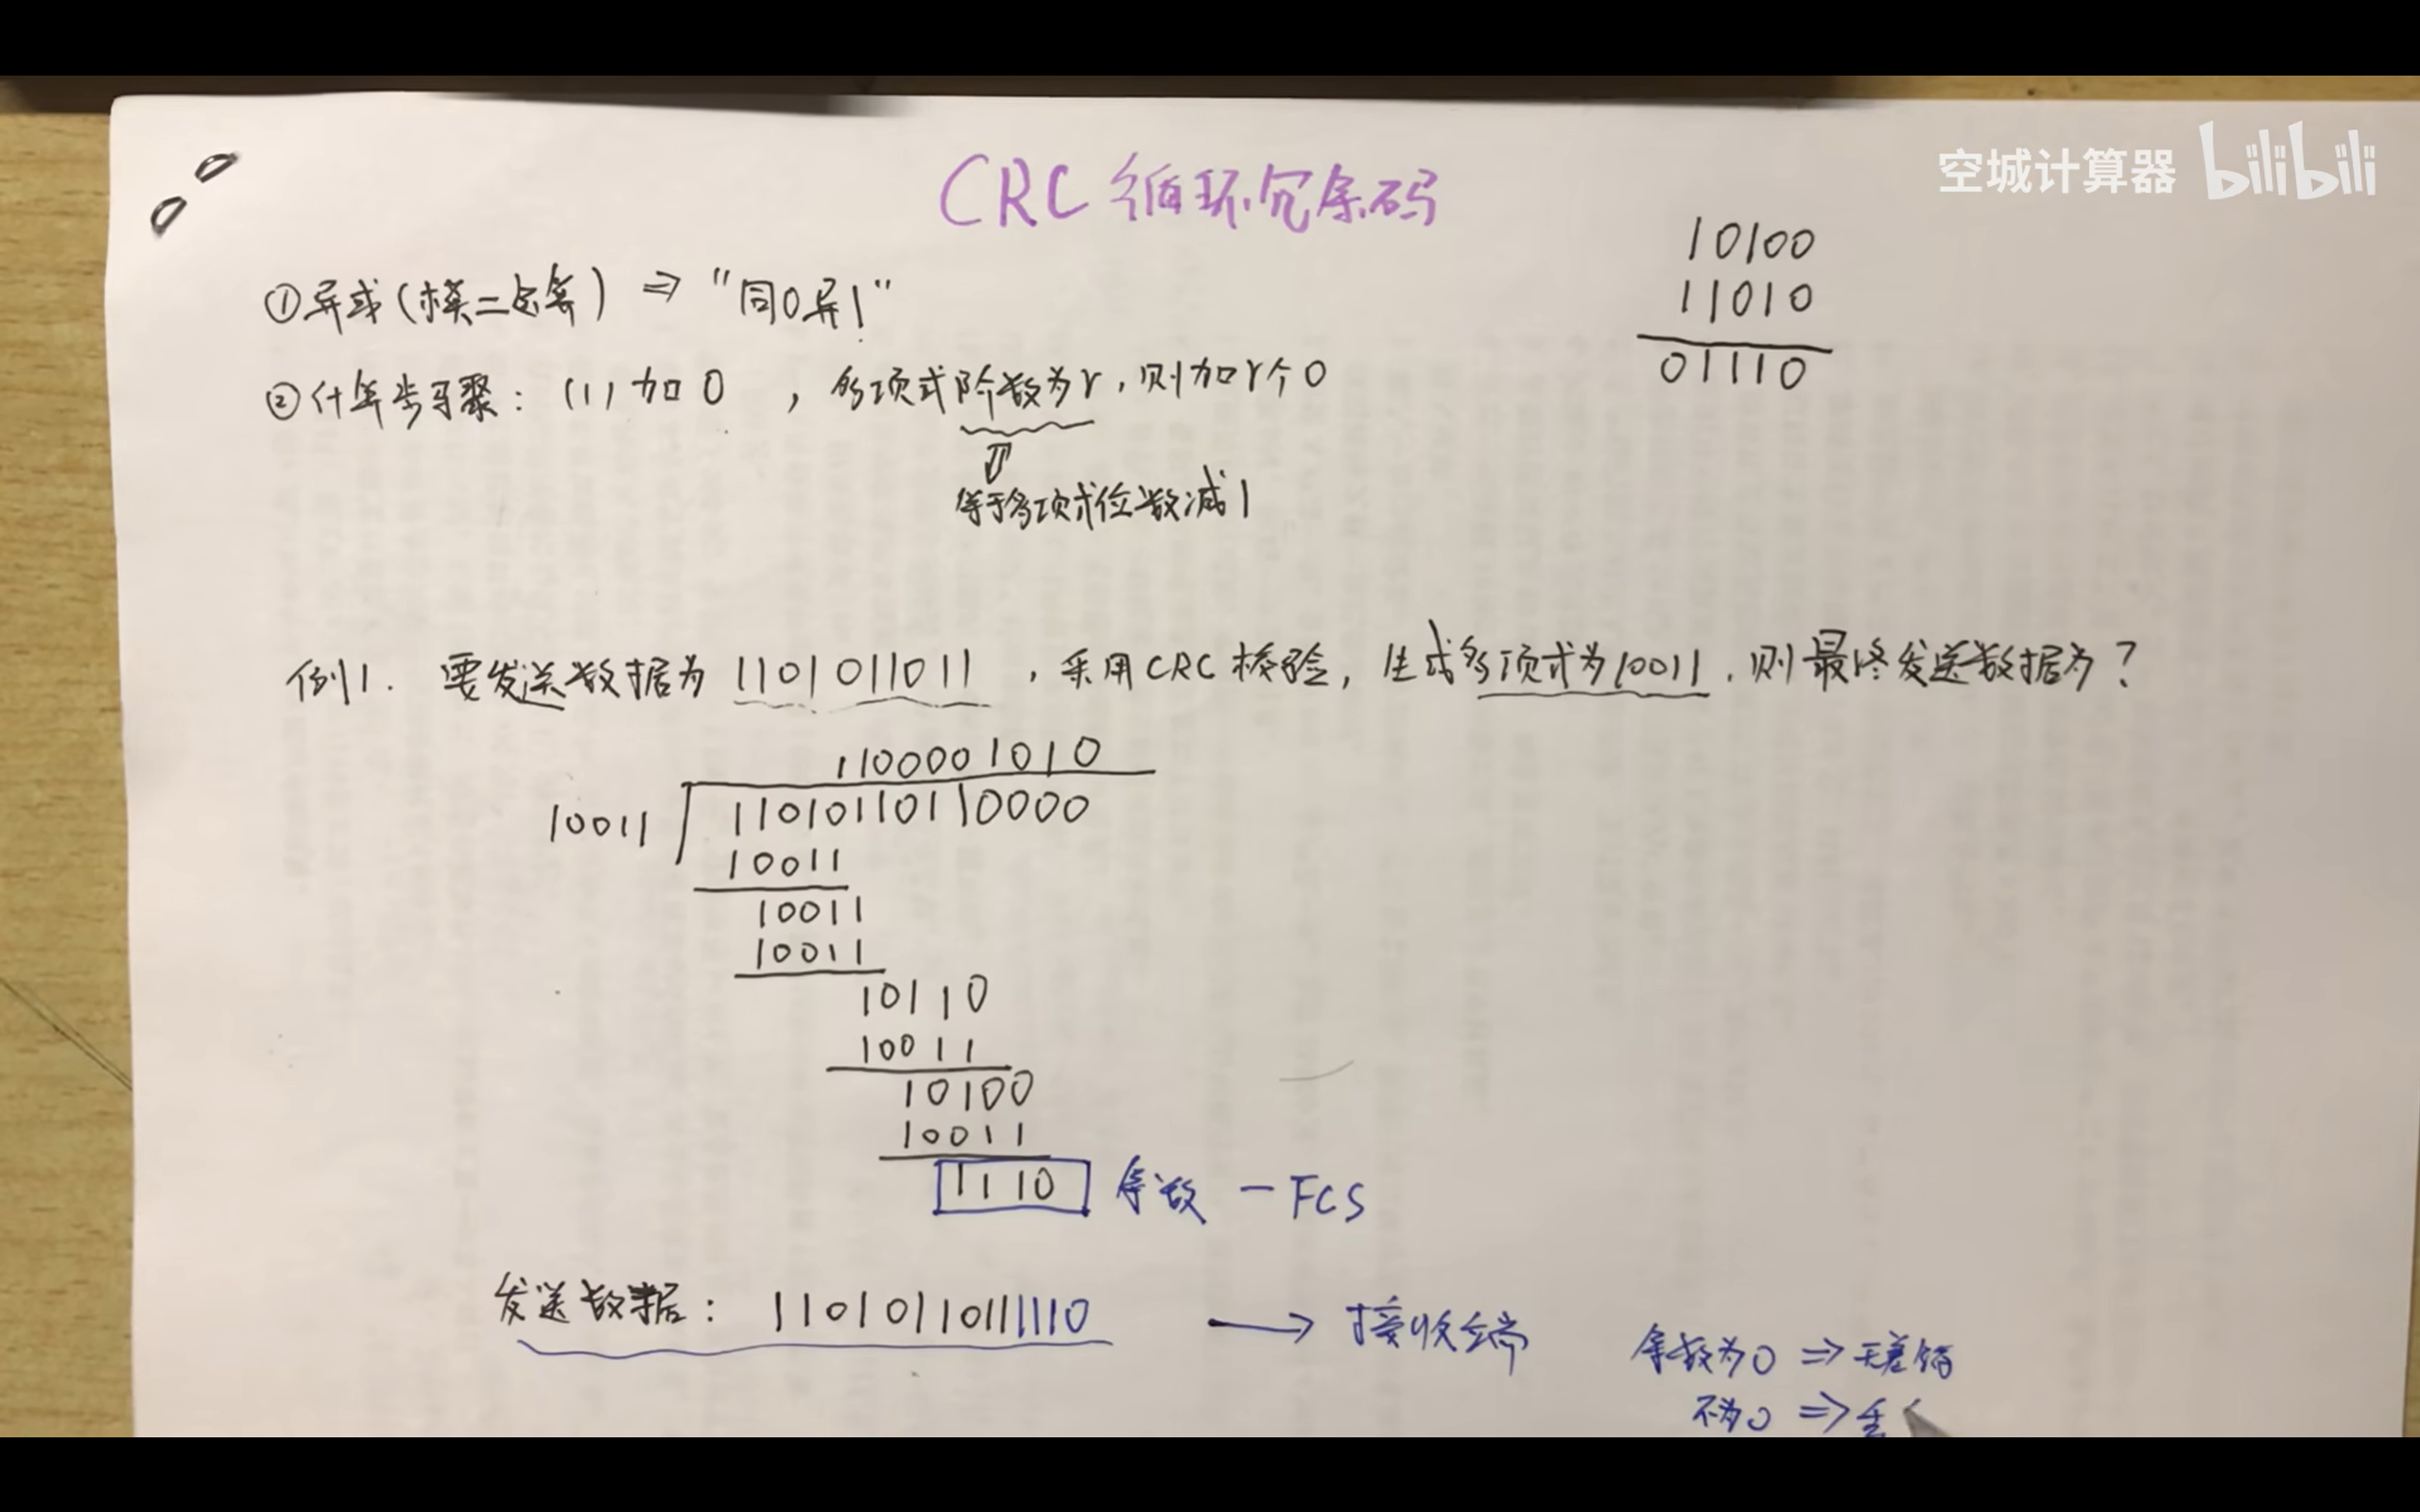 空城计算器 bilibili
CRC 循环冗余码
10100
11010
01110
①异或(模二运算) ⇒ "同0异1"
②计算步骤: (1) 加0 , 多项式阶数为r, 则加r个0
⇕
等于多项式位数减1
例1. 要发送数据为 1101011011 , 采用CRC校验, 生成多项式为10011, 则最终发送数据为?
1100001010
10011 11010110110000
10011
10011
10011
10110
10011
10100
10011
1110 余数 — FCS
发送数据: 11010110111110 → 接收端
余数为0 ⇒ 无差错
不为0 ⇒